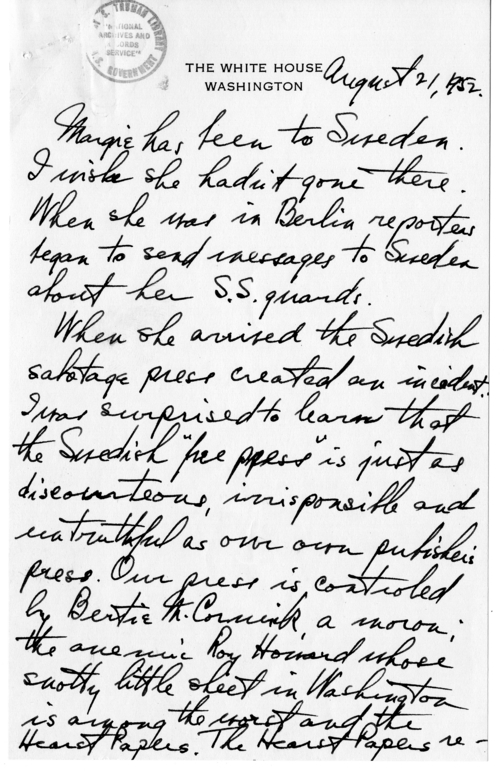 H. S. TRUMAN LIBRARY
"NATIONAL
ARCHIVES AND
RECORDS
SERVICE"
U.S. GOVERNMENT
THE WHITE HOUSE
WASHINGTON
August 21, 1952.
Margie has been to Sweden.
I wish she hadn't gone there.
When she was in Berlin reporters
began to send messages to Sweden
about her S.S. guards.
When she arrived the Swedish
sabotage press created an incident.
I was surprised to learn that
the Swedish "free press" is just as
discourteous, irrisponsible and
untruthful as our own publisher's
press. Our press is controled
by Bertie McCormick, a moron;
the anemic Roy Howard whose
snotty little sheet in Washington
is among the worst and the
Hearst Papers. The Hearst Papers re-